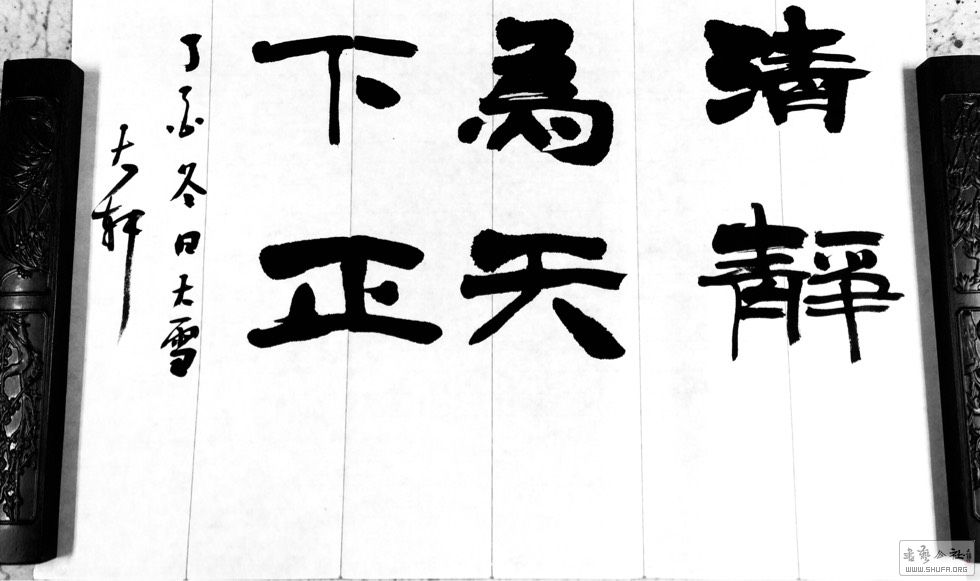 清靜
為天
下正
丁亥冬日大雪
大軒
WWW.SHUFA.ORG